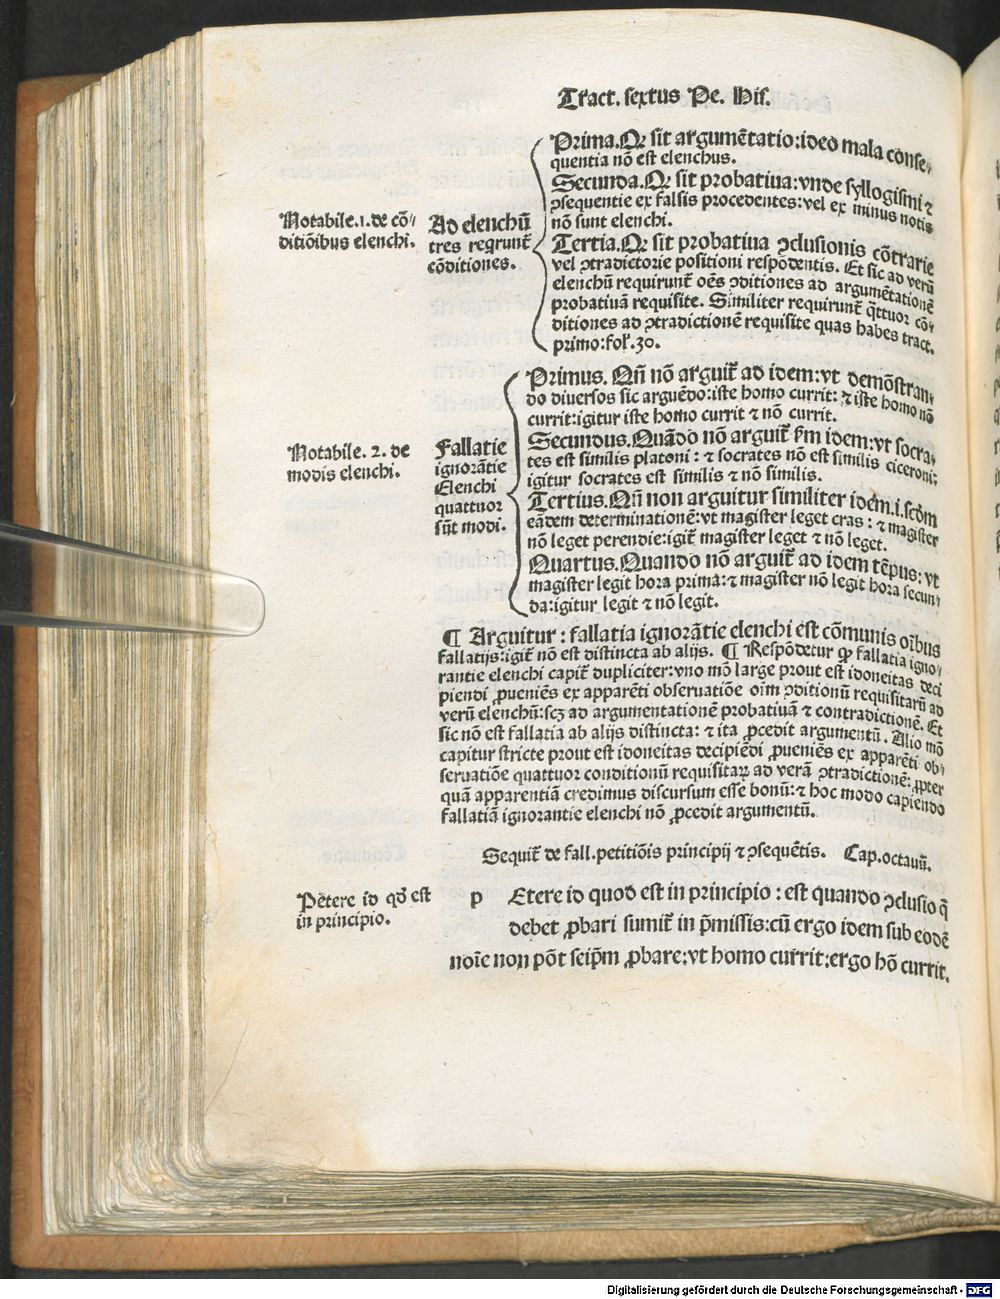 Tract. sextus Pe. His.
Notabile.1.de cō-
ditiōibus elenchi.
Ad elenchū
tres reqrunt᷑
cōditiones.
Prima.Qꝛ sit argumētatio:ideo mala conse-
quentia nō est elenchus.
Secunda.Qꝛ sit probatiua:vnde syllogismi ⁊
ꝯsequentie ex falsis procedentes:vel ex minus notis
nō sunt elenchi.
Tertia.Qꝛ sit probatiua ꝯclusionis cōtrarie
vel ꝯtradictorie positioni respōdentis. Et sic ad verū
elenchū requirunt᷑ oēs ꝯditiones ad argumētationē
probatiuā requisite. Similiter requirunt᷑ q̄ttuor cō-
ditiones ad ꝯtradictionē requisite quas habes tract.
primo:fol᷑.30.
Notabile. 2. de
modis elenchi.
Fallatie
ignorātie
Elenchi
quattuor
sūt modi.
Primus. Qñ nō arguit᷑ ad idem:vt demōstran-
do diuersos sic arguēdo:iste homo currit: ⁊ iste homo nō
currit:igitur iste homo currit ⁊ nō currit.
Secundus.Quādo nō arguit᷑ ẜm idem:vt socra-
tes est similis platoni: ⁊ socrates nō est similis ciceroni:
igitur socrates est similis ⁊ nō similis.
Tertius.Qñ non arguitur similiter idem.i.scḋm
eādem determinationē:vt magister leget cras: ⁊ magister
nō leget perendie:igit᷑ magister leget ⁊ nō leget.
Quartus.Quando nō arguit᷑ ad idem tēpus: vt
magister legit hora prima:⁊ magister nō legit hora secun-
da:igitur legit ⁊ nō legit.
¶ Arguitur : fallatia ignorātie elenchi est cōmunis oībus
fallatijs:igit᷑ nō est distincta ab alijs. ¶ Respōdetur ꝙ fallatia igno-
rantie elenchi capit᷑ dupliciter:vno mō large prout est idoneitas deci
piendi ꝓueniēs ex apparēti obseruatiōe oīm ꝯditionū requisitarū ad
verū elenchū:scꝫ ad argumentationē probatiuā ⁊ contradictionē. Et
sic nō est fallatia ab alijs distincta: ⁊ ita ꝓcedit argumentū. Alio mō
capitur stricte prout est idoneitas decipiēdi ꝓueniēs ex apparēti ob-
seruatiōe quattuor conditionū requisitaꝝ ad verā ꝯtradictionē: ꝓpter
quā apparentiā credimus discursum esse bonū:⁊ hoc modo capiendo
fallatiā ignorantie elenchi nō ꝓcedit argumentū.
Sequit᷑ de fall.petitiōis principij ⁊ ꝯsequētis. Cap.octauū.
Petere id qḋ est
in principio.
p Etere id quod est in principio : est quando ꝯclusio q̄
debet ꝓbari sumit᷑ in p̄missis:cū ergo idem sub eodē
noīe non pōt seip̄m ꝓbare:vt homo currit:ergo hō currit.
Digitalisierung gefördert durch die Deutsche Forschungsgemeinschaft - DFG